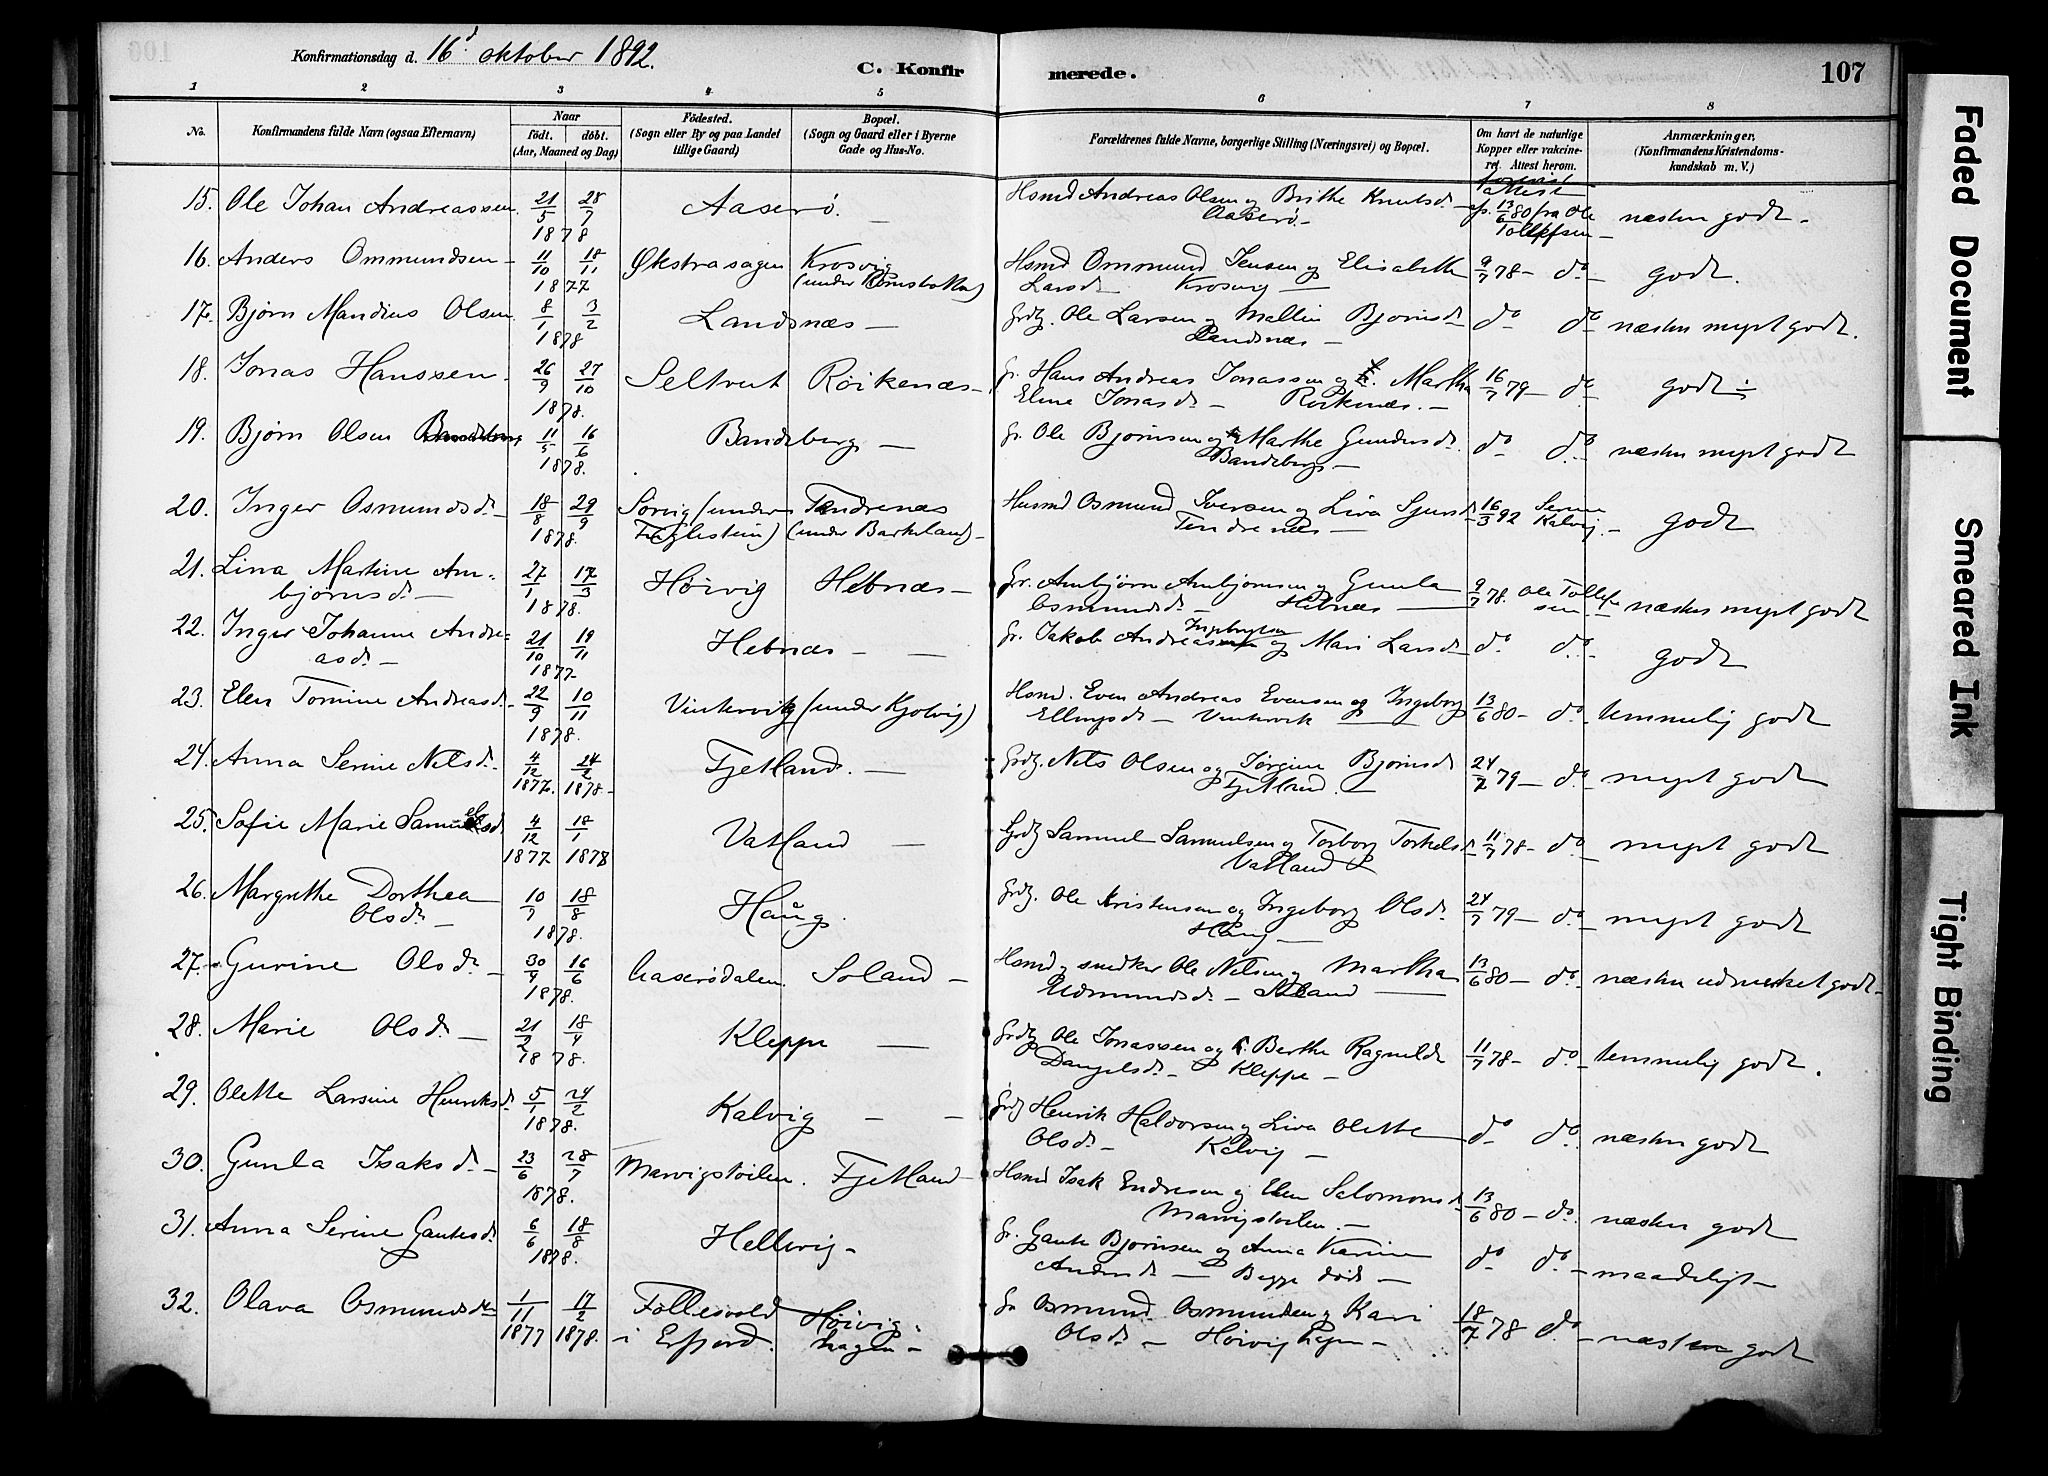 Konfirmationsdag d. 16d oktober 1892.
C. Konfirmerede.
107
1 2 3 4 5 6 7 8
No.
Konfirmandens fulde Navn (ogsaa Efternavn)
Naar
født. døbt.
(Aar, Maaned og Dag)
Fødested.
(Sogn eller By og paa Landet
tillige Gaard)
Bopæl.
(Sogn og Gaard eller i Byerne
Gade og Hus-No.
Forældrenes fulde Navne, borgerlige Stilling (Næringsvei) og Bopæl.
Om havt de naturlige
Kopper eller vakcine-
ret. Attest herom.
Anmærkninger,
(Konfirmandens Kristendoms-
kundskab m. V.)
15. Ole Johan Andreassen 21/5 28/7 1878 Aaserø. — Hsmd Andreas Olsen og Brithe Knutsd. Aaserø. — attest 13/6 80 fra Ole Tollefsen — næsten godt.
16. Anders Ommundsen 11/10 18/11 1877 Økstrasagen Krosvig Hsmd Ommund Jensen og Elisabeth Larsd. Krosvig — 9/7 78 — do — godt.
17. Bjørn Mandius Olsen 8/1 3/2 1878 Landsnæs — grdbr. Ole Larsen og Mallin Bjørnsd. Landsnæs — do do næsten meget godt.
18. Jonas Hanssen 26/9 27/10 1878. Seltveit Røikenæs — gr. Hans Andreas Jonassen og Martha Eline Jonasd. — Røikenæs. — 16/7 79 — do godt
19. Bjørn Olsen 11/5 16/6 1878. Bandeberg — gr. Ole Bjørnsen og Marthe Gundersd. Bandeberg — do do næsten meget godt
20. Inger Osmundsd. — 18/8 29/9 1878. Sørvig (under Fuglestein) Tendrenæs (under Barkeland) — Husmd Osmund Iversen og Liva Sjursd. Tendrenæs — 16/3 92 Serine Kalvig. — godt
21. Lina Martine Ambjørnsd. — 27/1 17/3 1878. Høivig Hebnæs — Gr. Ambjørn Ambjørnsen og Gunla Osmundsd. — Hebnæs — 9/7 78. Ole Tollefsen — næsten meget godt
22. Inger Johanne Andreasd. — 21/10 19/11 1877 Hebnæs — — gr. Jakob Andreas Ingebrigtsen og Mari Larsd. — do do — godt
23. Elen Tomine Andreasd. 22/9 10/11 1878. Vintervik (under Kjølvig) Hsmd. Even Andreas Evensen og Ingeborg Ellingsd. — Vintervik — 13/6 80 — do temmelig godt
24. Anna Serine Nilsd. 4/12 1877. 24/2 1878 — Fjetland. — Grdbr. Nils Olsen og Jørgine Bjørnsd. Fjetland. — 24/7 79 — do — meget godt
25. Sofie Marie Samuelsd. 4/12 1877 18/1 1878 Vatland — Grdbr Samuel Samuelsen og Torborg Torkelsd. Vatland 11/7 78 — do — meget godt
26. Margrethe Dorthea Olsd. — 10/7 18/8 1878. Haug. grdbr. Ole Kristensen og Ingeborg Olsd. Haug — 24/7 79 — do — meget godt
27. Gurine Olsd. — 30/4 16/6 1878. Aaserødalen. Soland — Hsmd og snedker Ole Nilsen og Martha Udmundsd. — Soland — 13/6 80 — do — næsten udmerket godt —
28. Marie Olsd. — 21/2 18/4 1878. Kleppe — Grdbr Ole Jonassen og Berthe Ragnilde Danjelsd. — Kleppe — 11/7 78 — do — temmelig godt.
29. Olette Larsine Henriksd. 5/1 24/2 1878. Kalvig — — Grdbr Henrik Haldorsen og Liva Olette Olsd. — Kalvig — do do næsten godt
30. Gunla Isaksd. — 23/6 28/7 1878. Marvigstøilen. Fjetland — Hsmd Isak Endresen og Elen Salomonsd. Marvigstøilen. — 13/6 80 — do. næsten godt
31. Anna Serine Gautesd. 6/6 18/8 1878. Hellvig — gr. Gaute Bjørnsen og Anna Karine Andersd. — Begge død — do do — maadeligt —
32. Olava Osmundsdtr 1/11 1877 17/2 1878. Follesvold i Erfjord. Høivighagen — gr Osmund Osmundsen og Kari Olsd. — Høivighagen — 18/7 78 do — næsten godt
Faded Document
Smeared Ink
Tight Binding